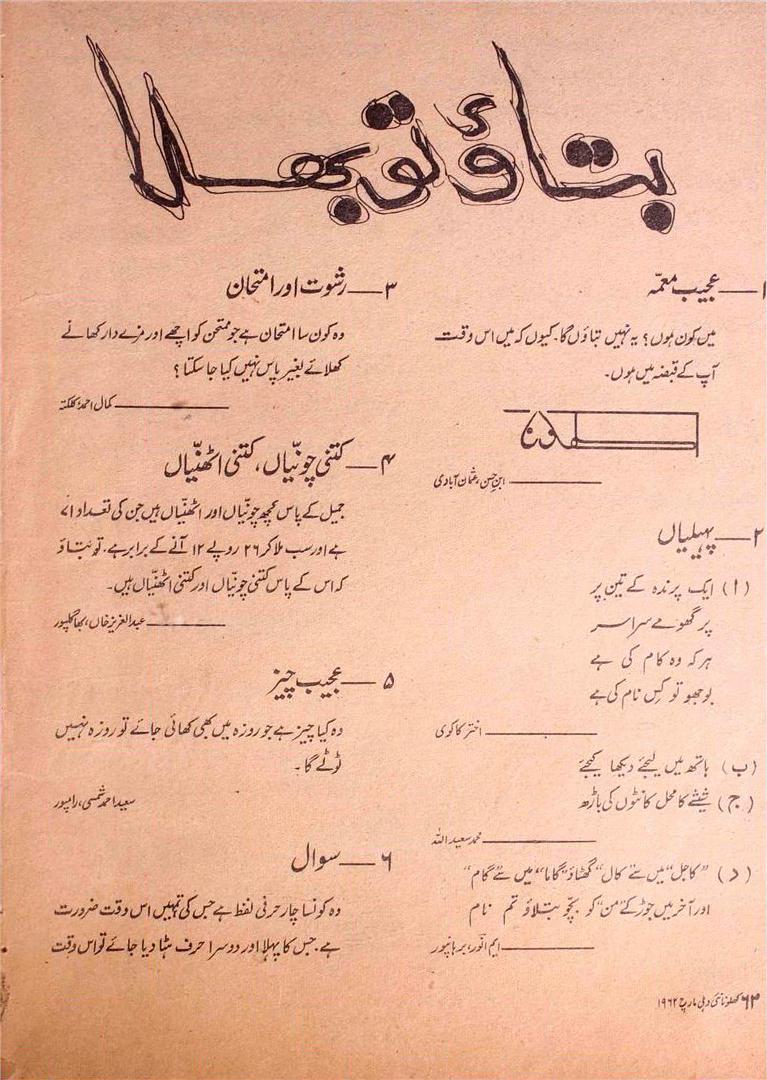 بتاؤ تو بھلا
۱ــــ عجیب معمّہ
میں کون ہوں؟ یہ نہیں بتاؤں گا۔ کیوں کہ میں اس وقت
آپ کے قبضہ میں ہوں۔
ابنِ حسن، عثمان آبادی
۲ــــ پہیلیاں
(ا) ایک پرندہ کے تین پر
پر گھومے سراسر
ہر کہ وہ کام کی ہے
بوجھو تو کِس نام کی ہے
اختر کاکوی
(ب) ہاتھ میں لیجئے دیکھا کیجئے
(ج) شیشے کا محل کانٹوں کی باڑھ
محمد سعید اللہ
(د) ”کاجل“ میں سے ”کال“ گھٹاؤ ”گاما“ میں سے ”گام“
اور آخر میں جوڑ کے ”من“ کو بچّو بتلاؤ تم نام
ایم انور، برہانپور
۳ــــ رشوت اور امتحان
وہ کون سا امتحان ہے جو ممتحن کو اچھے اور مزے دار کھانے
کھلائے بغیر پاس نہیں کیا جا سکتا؟
کمال احمد، کلکتہ
۴ــــ کتنی چونّیاں، کتنی اٹھنّیاں
جمیل کے پاس کچھ چونّیاں اور اٹھنّیاں ہیں جن کی تعداد ۷۱
ہے اور سب ملا کر ۲۶ روپے ۱۲ آنے کے برابر ہے۔ تو بتاؤ
کہ اس کے پاس کتنی چونّیاں اور کتنی اٹھنّیاں ہیں۔
عبدالعزیز خاں، بھاگلپور
۵ــــ عجیب چیز
وہ کیا چیز ہے جو روزہ میں بھی کھائی جائے تو روزہ نہیں
ٹوٹے گا۔
سعید احمد شمسی، رامپور
۶ــــ سوال
وہ کونسا چار حرفی لفظ ہے جس کی تمہیں اس وقت ضرورت
ہے۔ جس کا پہلا اور دوسرا حرف ہٹا دیا جائے تو اس وقت
۶۲ کھلونا نئی دہلی مارچ ۱۹۶۲